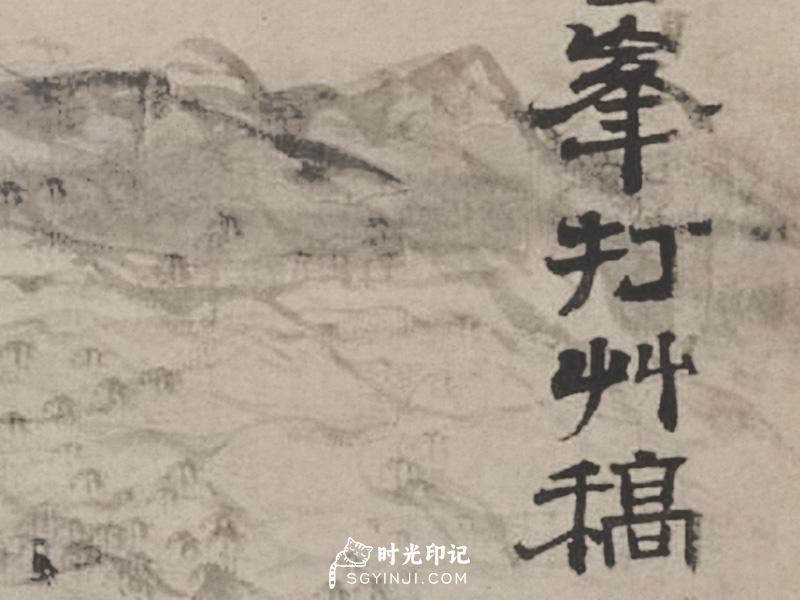 峯打艸稿
时光印记
SGYINJI.COM